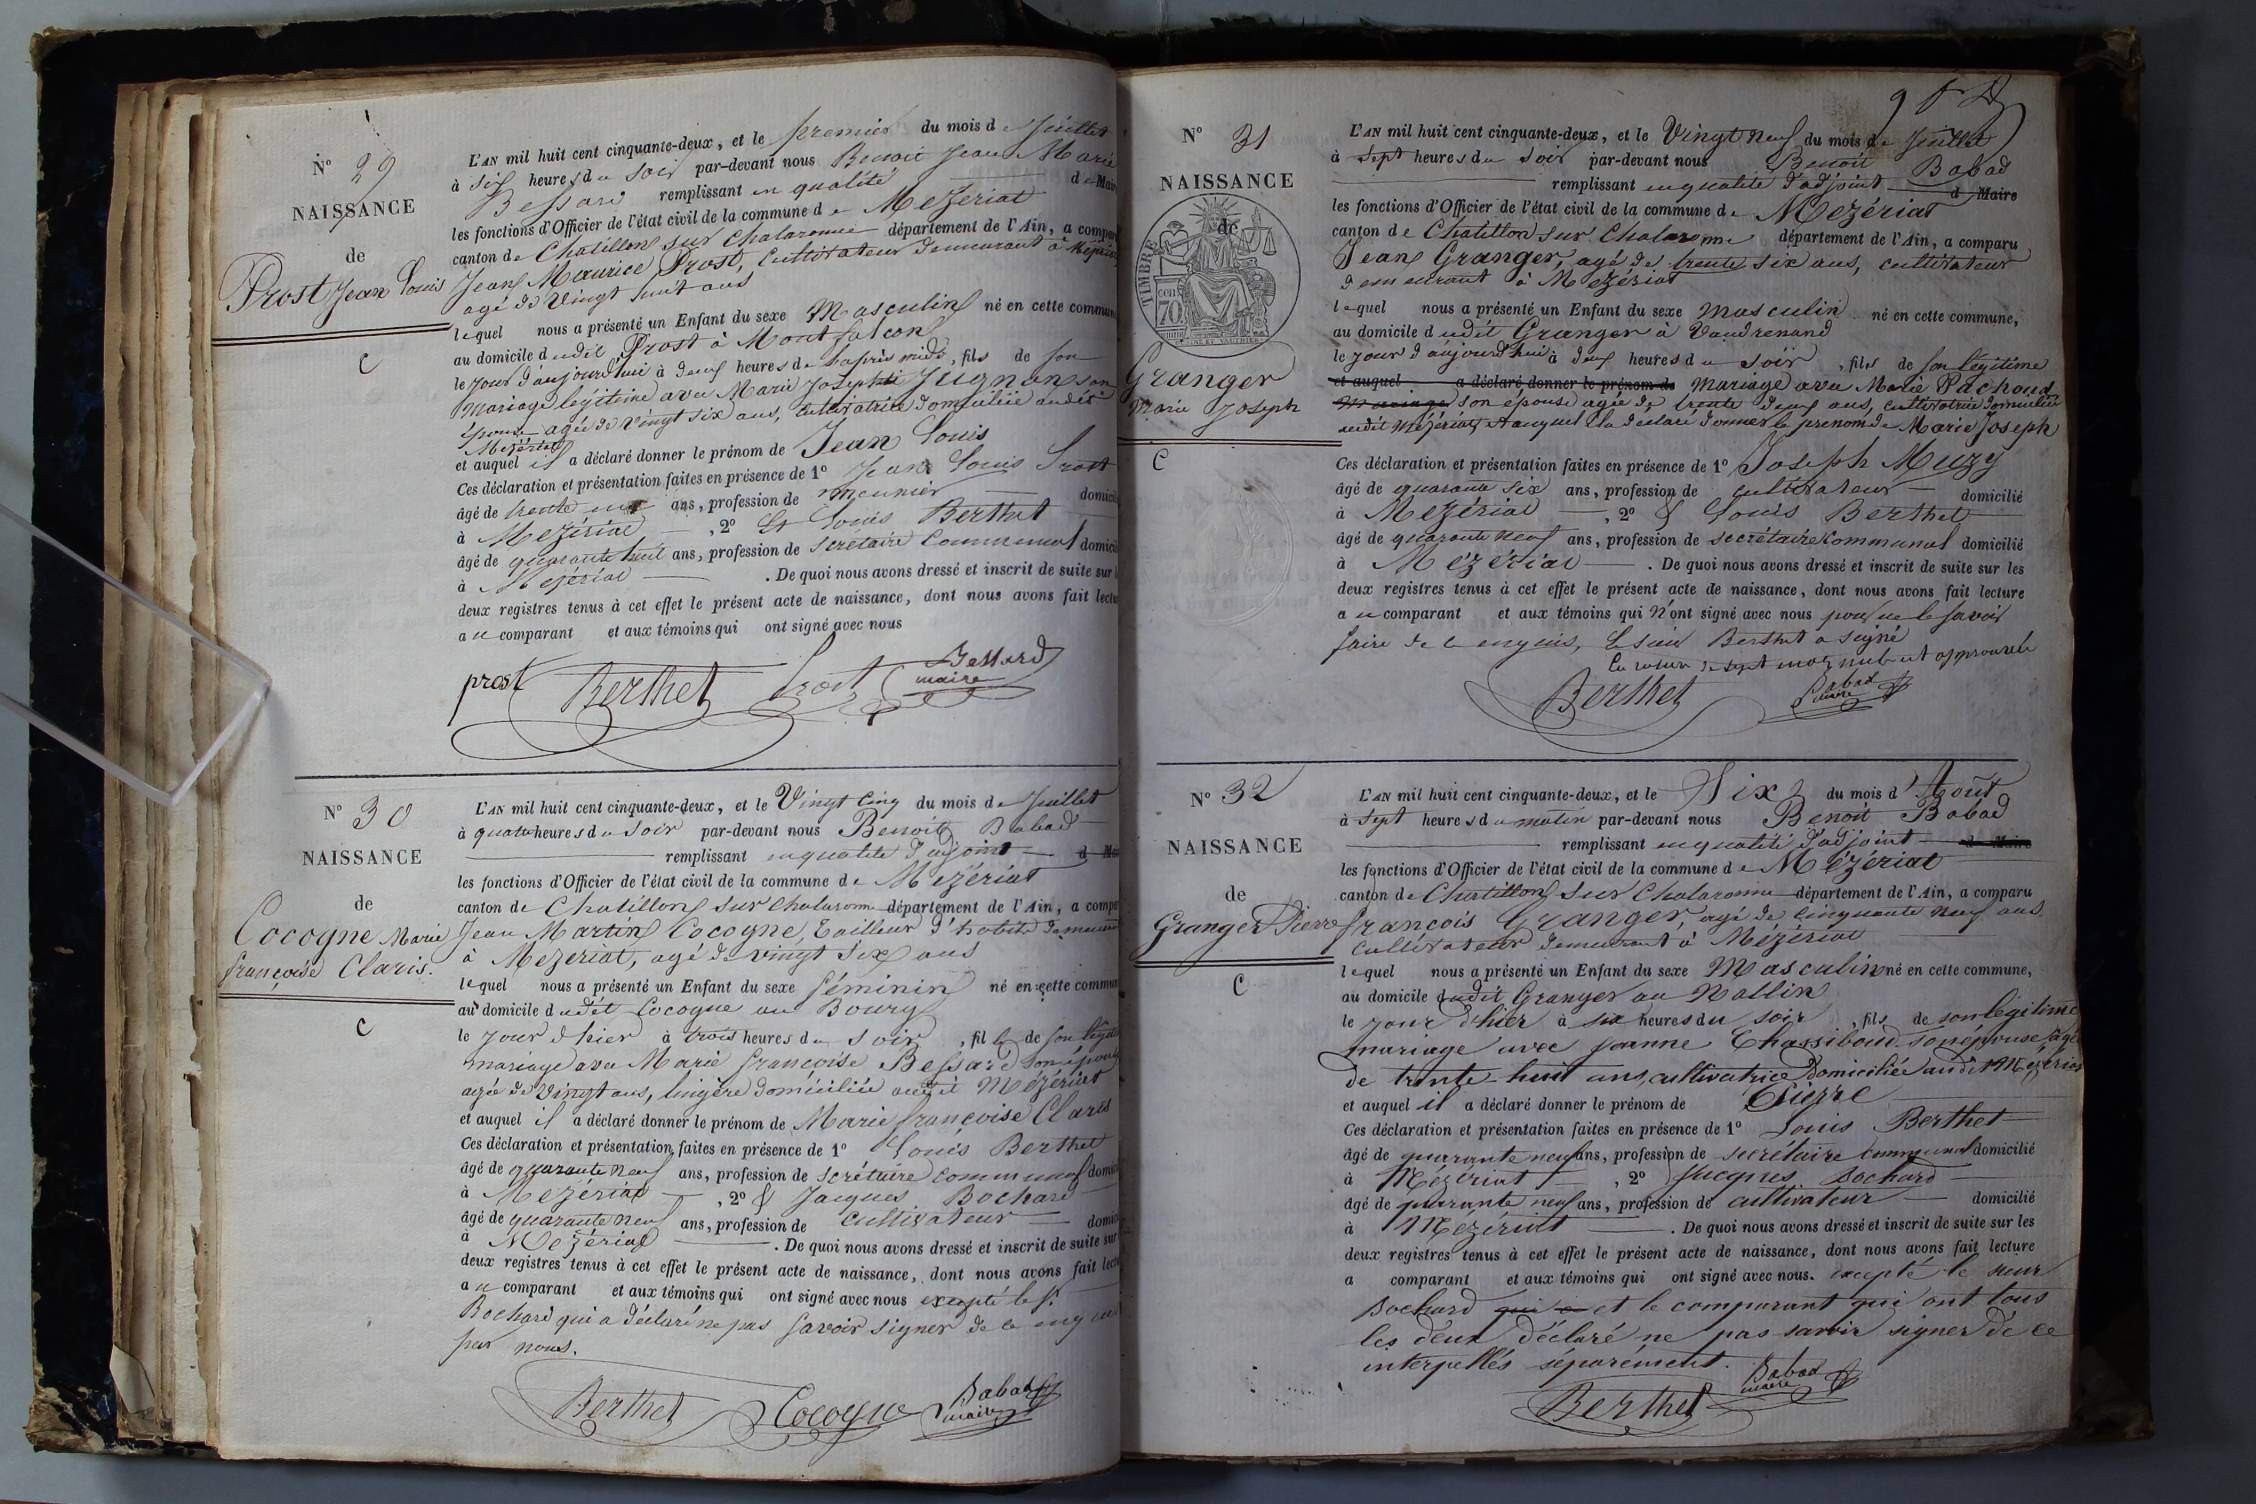 N° 29
NAISSANCE
de
Prost Jean Louis
C
L'AN mil huit cent cinquante-deux, et le premier du mois de Juillet
à six heures du soir par-devant nous Benoit Jean Marie
Bessard remplissant en qualité de Maire
les fonctions d'Officier de l'état civil de la commune de Mezériat
canton de Chatillon sur Chalaronne département de l'Ain, a comparu
Jean Maurice Prost, cultivateur demeurant à Mezériat
agé de vingt huit ans
lequel nous a présenté un Enfant du sexe Masculin né en cette commune
au domicile dudit Prost à Montfalcon
le jour d'aujourd'hui à deux heures de l'après midi, fils de son
mariage légitime avec Marie Josephte Jugnon son
épouse agée de vingt six ans, cultivatrice domiciliée audit
Mezériat
et auquel il a déclaré donner le prénom de Jean Louis
Ces déclaration et présentation faites en présence de 1° Jean Louis Prost
âgé de trente ans, profession de meunier domicilié
à Mezériat, 2° Et Louis Berthet
âgé de quarante huit ans, profession de secretaire communal domicilié
à Mezériat. De quoi nous avons dressé et inscrit de suite sur les
deux registres tenus à cet effet le présent acte de naissance, dont nous avons fait lecture
au comparant et aux témoins qui ont signé avec nous
prost Berthet Prost Bessard
maire
N° 30
NAISSANCE
de
Cocogne Marie
françoise Claris.
C
L'AN mil huit cent cinquante-deux, et le Vingt Cinq du mois de Juillet
à quatre heures du soir par-devant nous Benoit Babad
remplissant en qualité d'adjoint d Maire
les fonctions d'Officier de l'état civil de la commune de Mezériat
canton de Chatillon sur Chalaronne département de l'Ain, a comparu
Jean Martin Cocogne, tailleur d'habits demeurant
à Mezeriat, agé de vingt six ans
lequel nous a présenté un Enfant du sexe féminin né en cette commune
au domicile dudit Cocogne au Bourg
le jour d'hier à trois heures du soir, fille de son légitime
mariage avec Marie françoise Bessard son épouse
agée de vingt ans, lingère domiciliée audit Mézériat
et auquel il a déclaré donner le prénom de Marie françoise Claris
Ces déclaration et présentation faites en présence de 1° Louis Berthet
âgé de quarante neuf ans, profession de secrétaire communal domicilié
à Mezériat, 2° & Jacques Bochard
âgé de quarante neuf ans, profession de cultivateur domicilié
à Mezériat. De quoi nous avons dressé et inscrit de suite sur
deux registres tenus à cet effet le présent acte de naissance, dont nous avons fait lecture
au comparant et aux témoins qui ont signé avec nous excepté le s.
Bochard qui a déclaré ne pas savoir signer de ce enquis
par nous.
Berthet Cocogne Babad
maire
N° 31
NAISSANCE
de
TIMBRE
70
Granger
Marie Joseph
C
L'AN mil huit cent cinquante-deux, et le Vingt neuf du mois de Juillet
à sept heures du soir par-devant nous Benoit Babad
remplissant en qualité d'adjoint d Maire
les fonctions d'Officier de l'état civil de la commune de Mezériat
canton de Chatillon sur Chalaronne département de l'Ain, a comparu
Jean Granger, agé de trente six ans, cultivateur
demeurant à Mezériat
lequel nous a présenté un Enfant du sexe masculin né en cette commune,
au domicile dudit Granger à Vaudrenand
le jour d'aujourd'hui à deux heures du soir, fils de son légitime
et auquel a déclaré donner le prénom de mariage avec Marie Pachoud
Mariage son épouse agée de trente deux ans, cultivatrice domiciliée
audit Mézériat, et auquel il a déclaré donner le prenom de Marie Joseph
Ces déclaration et présentation faites en présence de 1° Joseph Muzy
âgé de quarante six ans, profession de cultivateur domicilié
à Mezériat, 2° & Louis Berthet
âgé de quarante neuf ans, profession de secrétaire communal domicilié
à Mézériat. De quoi nous avons dressé et inscrit de suite sur les
deux registres tenus à cet effet le présent acte de naissance, dont nous avons fait lecture
au comparant et aux témoins qui n'ont signé avec nous pour ne le savoir
faire de ce enquis, le sieur Berthet a signé
La rature de sept mots nuls est approuvée
Berthet Babad
maire
N° 32
NAISSANCE
de
Granger Pierre
C
L'AN mil huit cent cinquante-deux, et le Six du mois d'Août
à sept heures du matin par-devant nous Benoit Babad
remplissant en qualité d'adjoint d Maire
les fonctions d'Officier de l'état civil de la commune de Mézériat
canton de Chatillon sur Chalaronne département de l'Ain, a comparu
françois Granger, agé de cinquante neuf ans
cultivateur demeurant à Mézériat
lequel nous a présenté un Enfant du sexe Masculin né en cette commune,
au domicile dudit Granger au Nallin
le jour d'hier à six heures du soir, fils de son légitime
mariage avec Jeanne Chassiboud son épouse agée
de trente-huit ans, cultivatrice domiciliée audit Mézériat
et auquel il a déclaré donner le prénom de Pierre
Ces déclaration et présentation faites en présence de 1° Louis Berthet
âgé de quarante neuf ans, profession de secrétaire communal domicilié
à Mézériat, 2° Jacques Bochard
âgé de quarante neuf ans, profession de cultivateur domicilié
à Mézériat. De quoi nous avons dressé et inscrit de suite sur les
deux registres tenus à cet effet le présent acte de naissance, dont nous avons fait lecture
a comparant et aux témoins qui ont signé avec nous. excepté le sieur
Bochard qui a et le comparant qui ont tous
les deux déclaré ne pas savoir signer de ce
interpellés séparément.
Berthet Babad
maire